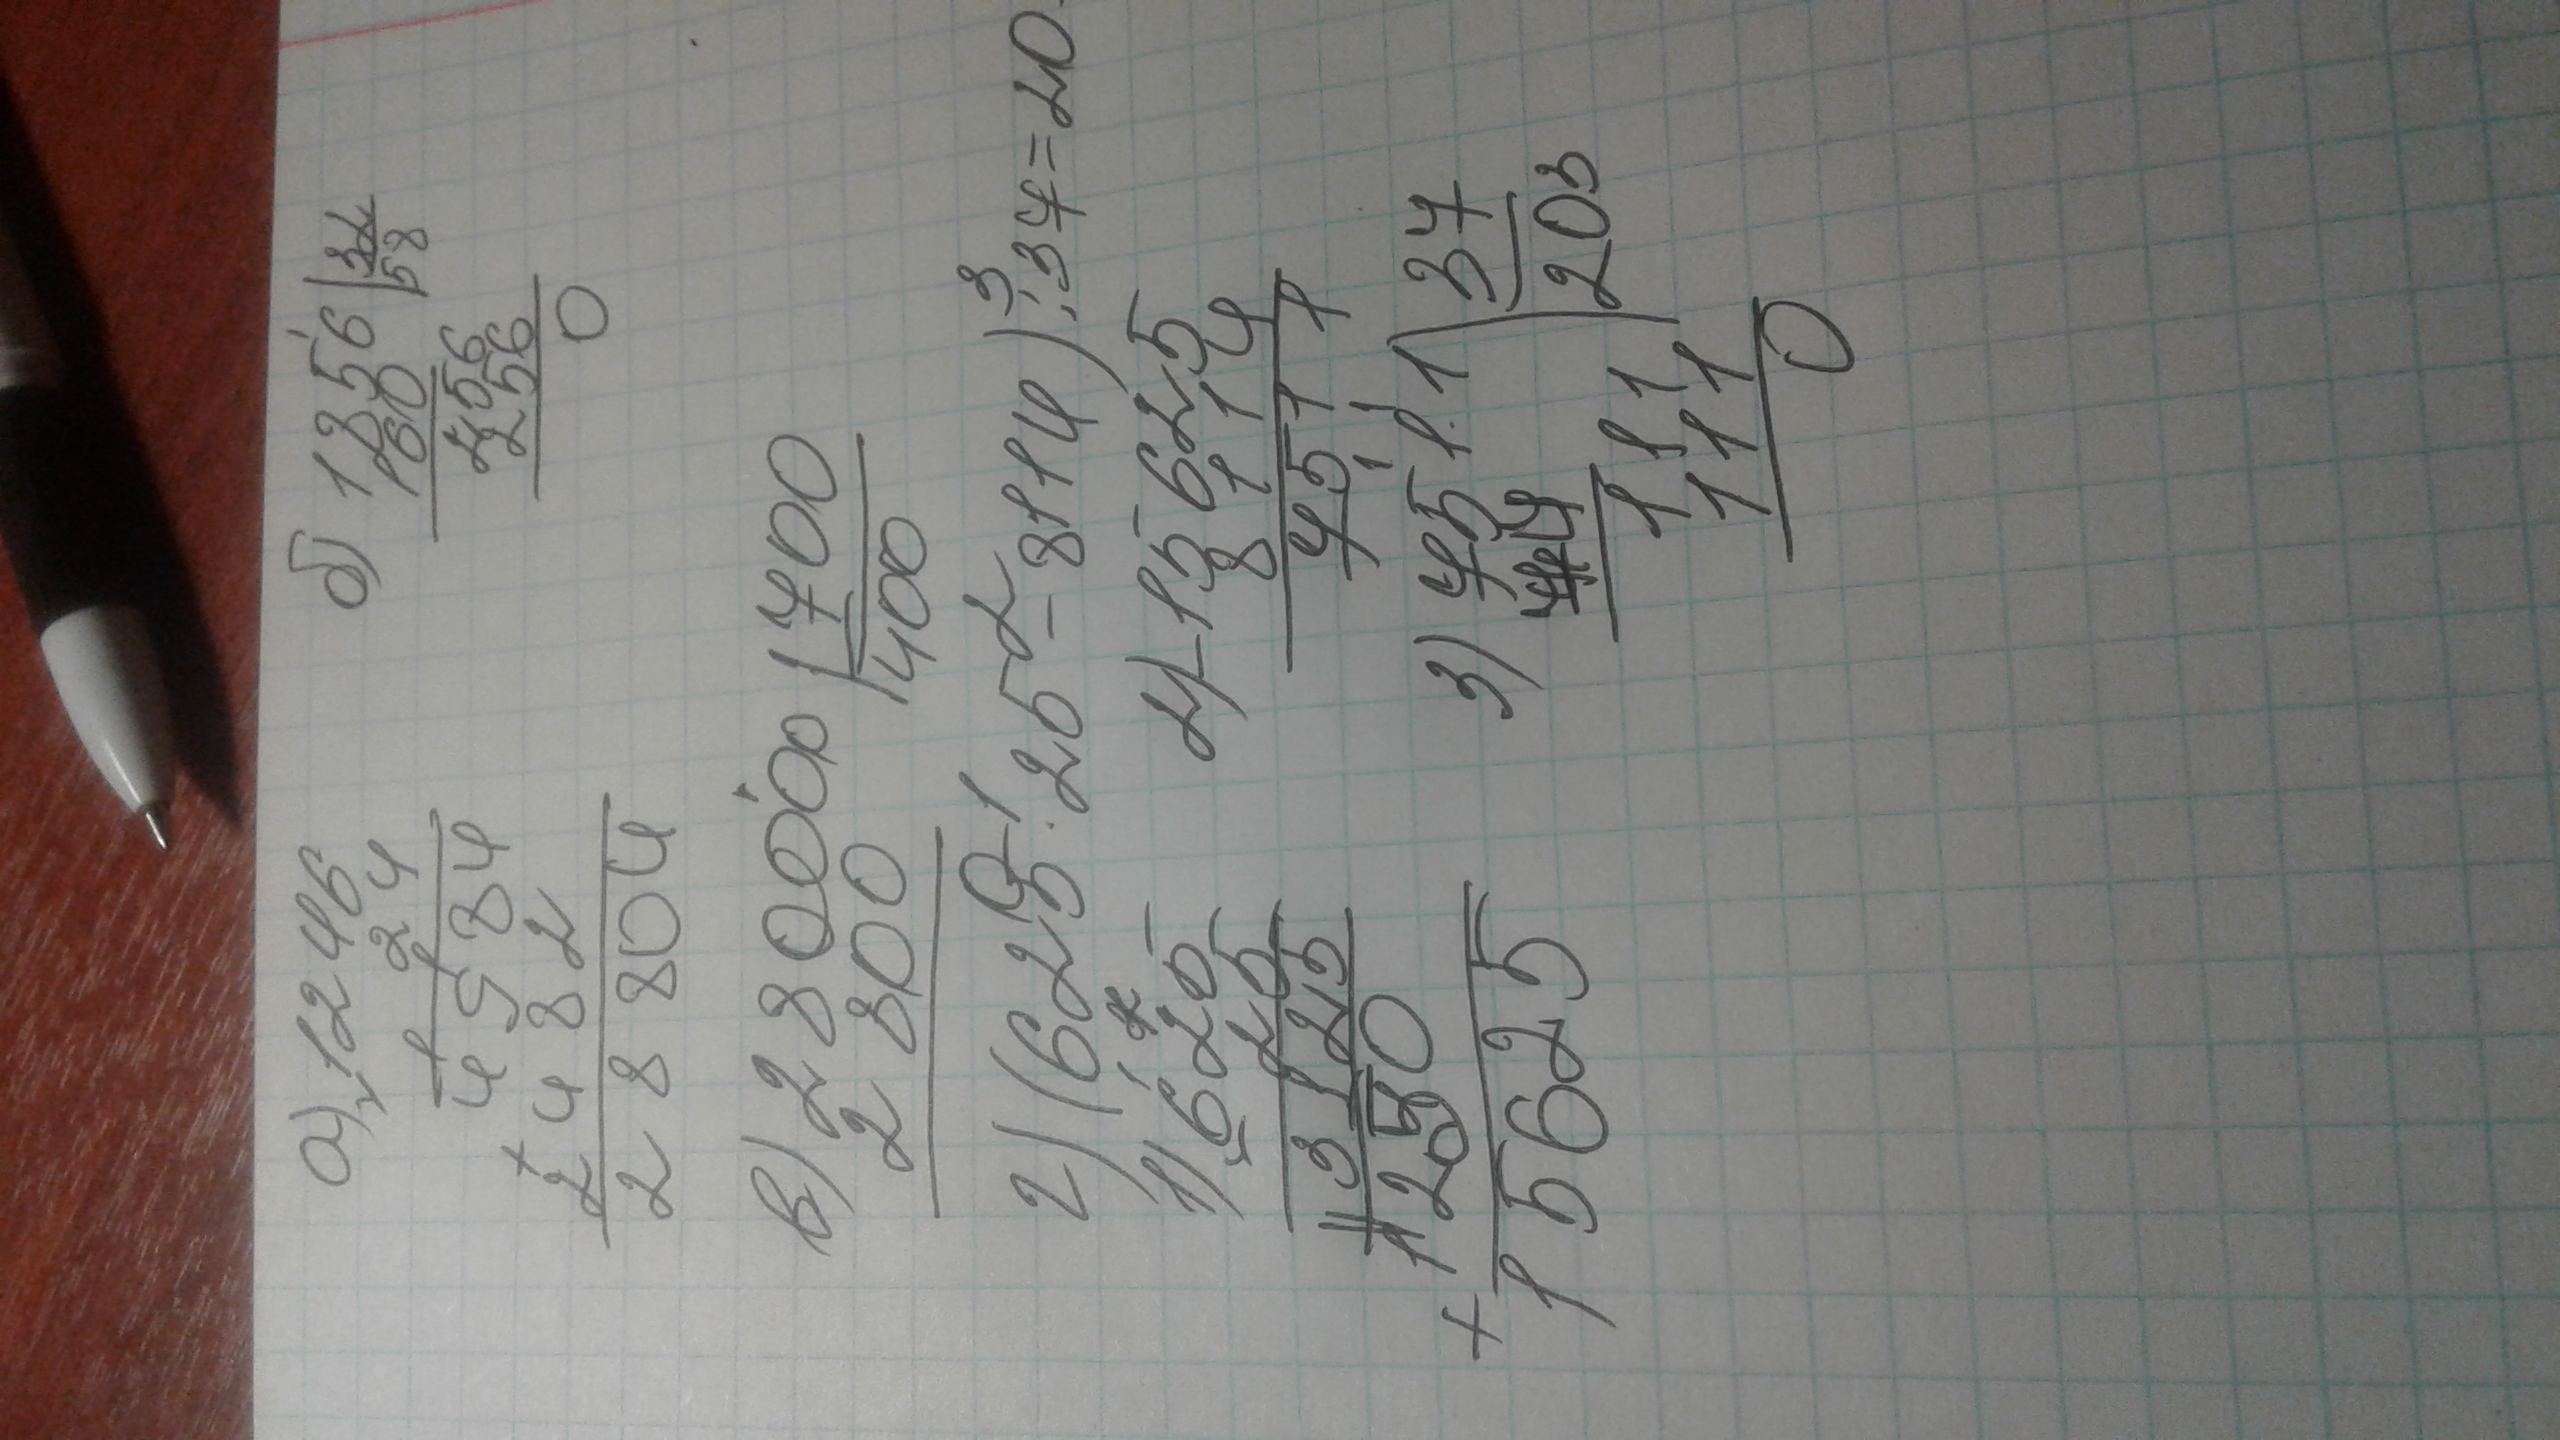 а) 1246
× 24
4984
+
2482
28804
б) 1856 | 32
160 | 58
256
256
0
в) 280000 | 700
2800 | 400
г) (625 · 25 - 8114) : 37 = 20
1) 625
× 25
3125
+ 1250
15625
2) - 15625
8114
7511
3) 7511 | 37
74 | 203
111
111
0